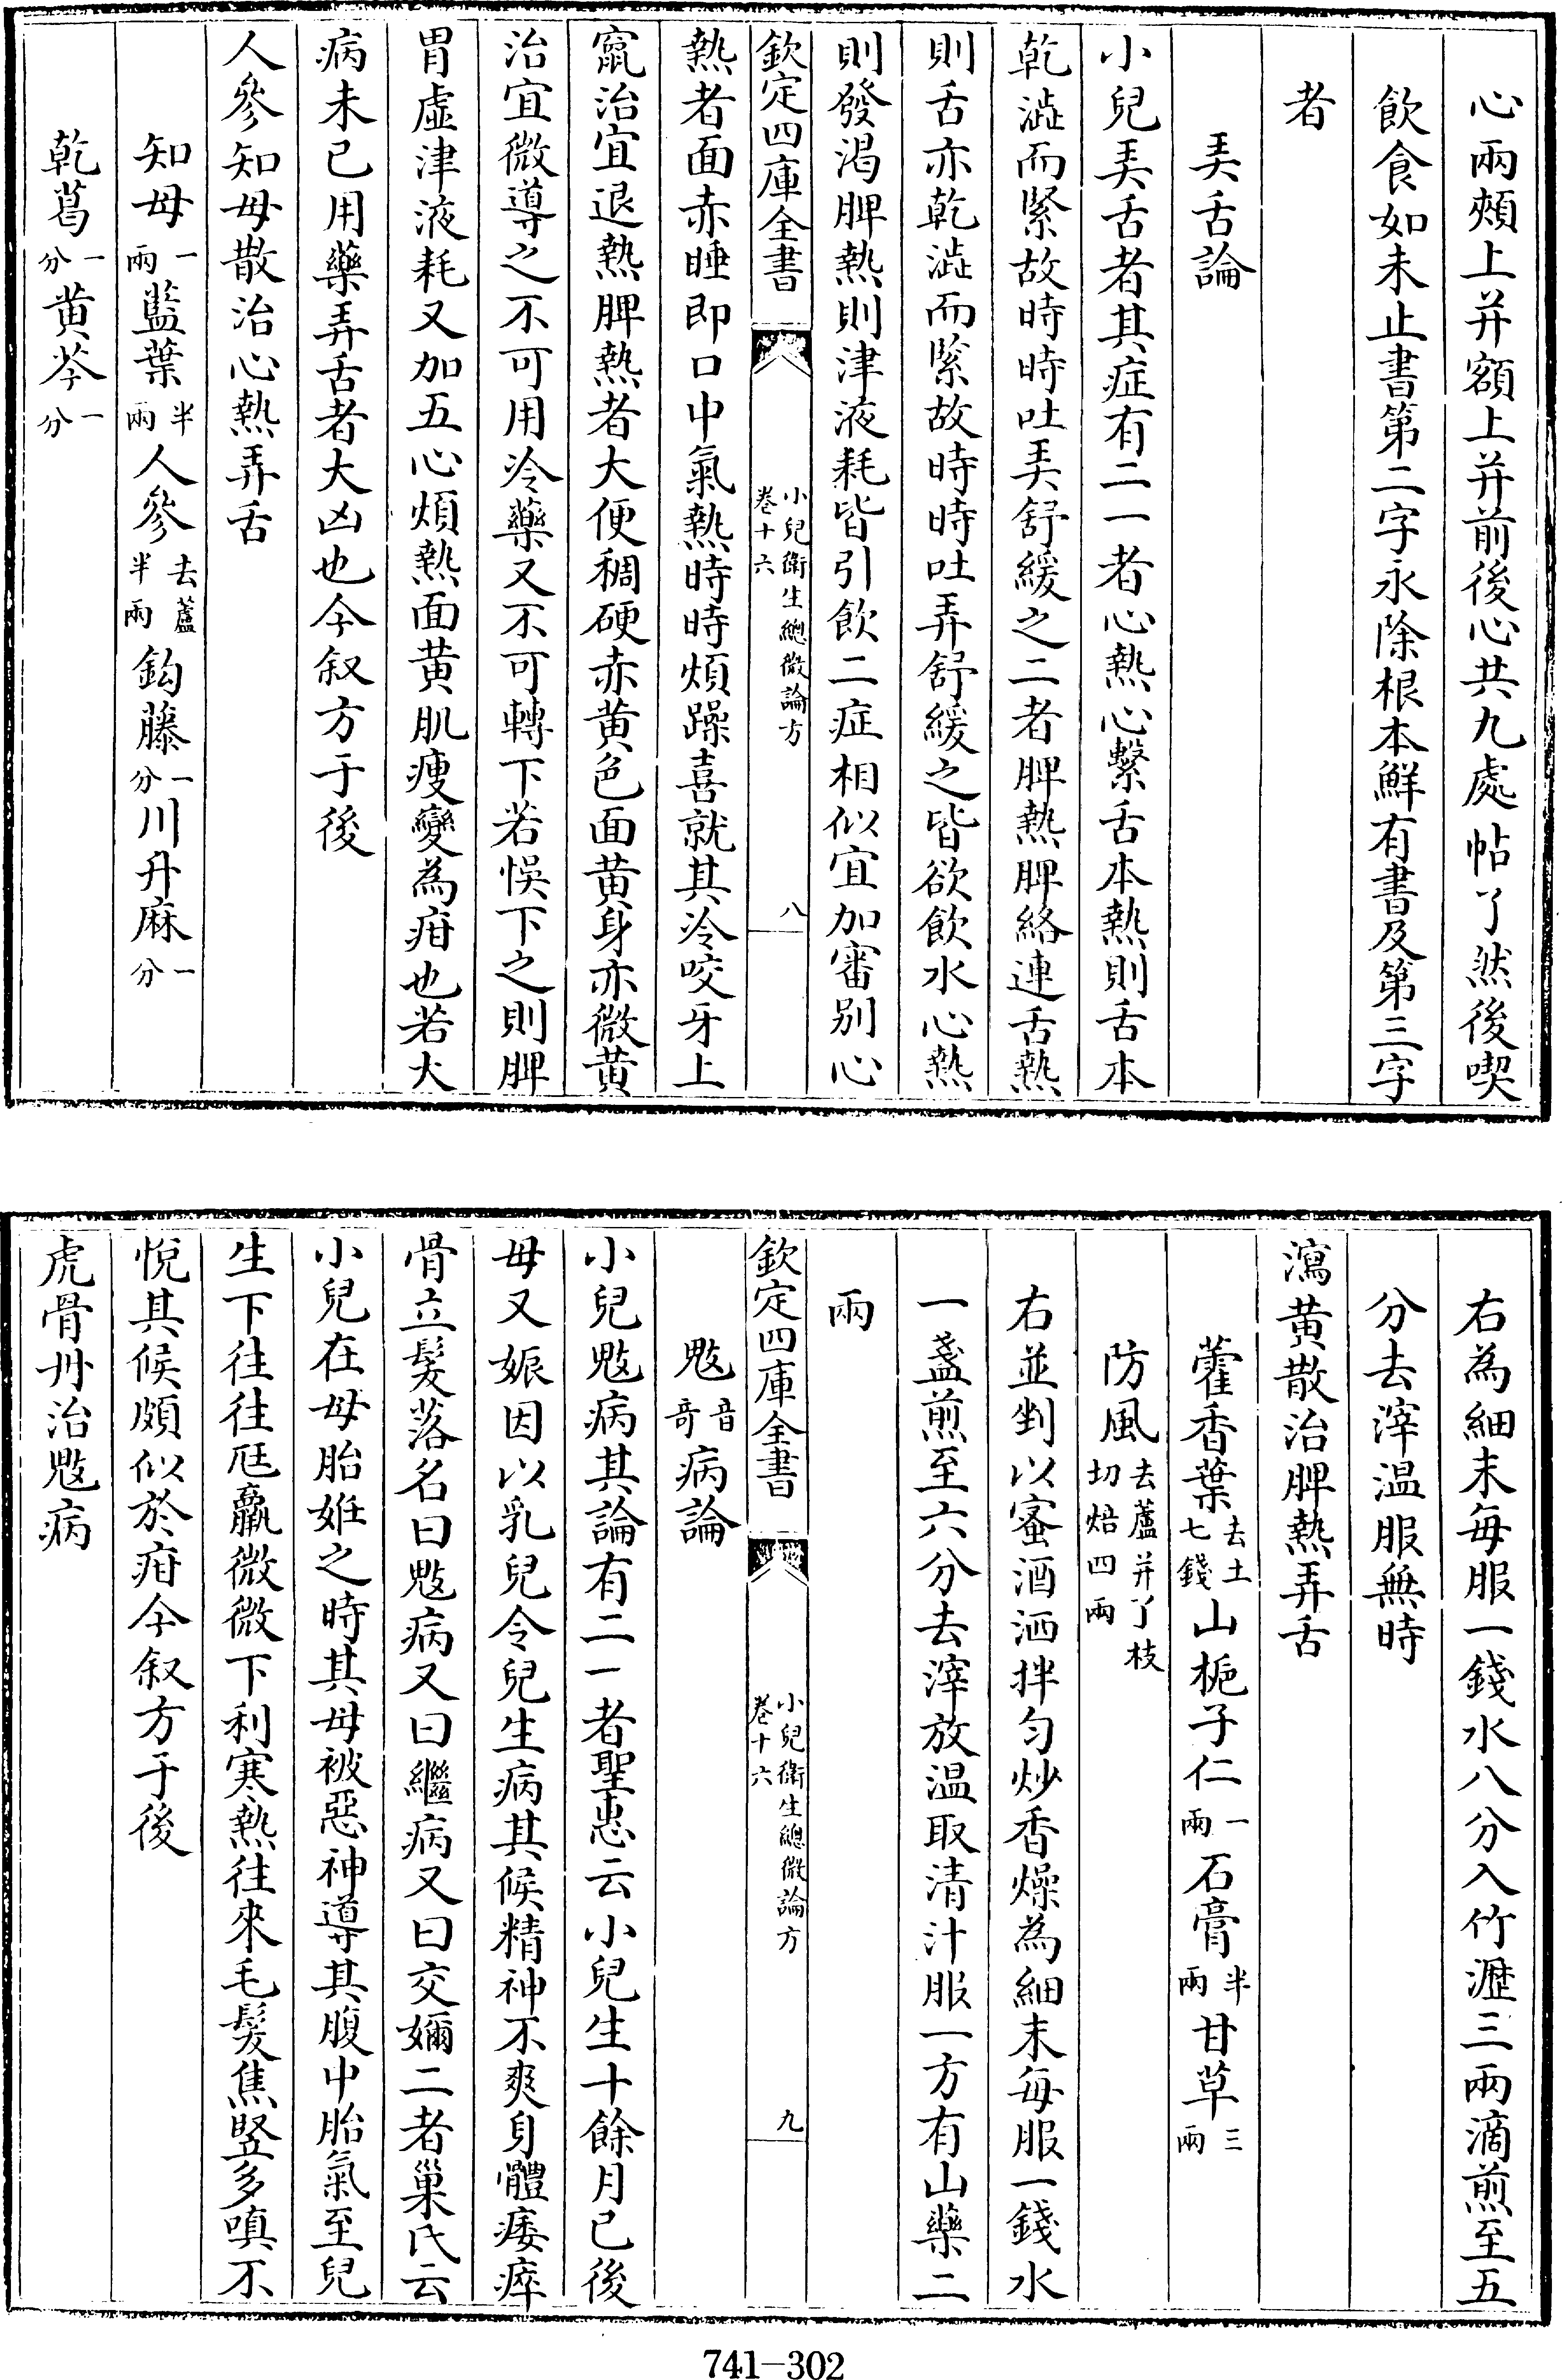 心兩頰上并額上并前後心共九處帖了然後喫
飲食如未止書第二字永除根本鮮有書及第三字
者
弄舌論
小兒弄舌者其症有二一者心熱心繫舌本熱則舌本
乾澁而緊故時時吐弄舒緩之二者脾熱脾絡連舌熱
則舌亦乾澁而緊故時時吐弄舒緩之皆欲飲水心熱
則發渴脾熱則津液耗皆引飲二症相似宜加審别心
欽定四庫全書 小兒衛生總微論方 卷十六 八
熱者面赤睡即口中氣熱時時煩躁喜就其冷咬牙上
竄治宜退熱脾熱者大便稠硬赤黄色面黄身亦微黄
治宜微導之不可用冷藥又不可轉下若悞下之則脾
胃虛津液耗又加五心煩熱面黄肌瘦變為疳也若大
病未已用藥弄舌者大凶也今叙方于後
人參知母散治心熱弄舌
知母一兩藍葉半兩人參去蘆半兩鈎藤一分川升麻一分
乾葛一分黄芩一分
右為細末每服一錢水八分入竹瀝三兩滴煎至五
分去滓温服無時
瀉黄散治脾熱弄舌
藿香葉去土七錢山梔子仁一兩石膏半兩甘草三兩
防風去蘆并丫枝切焙四兩
右並剉以蜜酒洒拌匀炒香燥為細末每服一錢水
一盞煎至六分去滓放温取清汁服一方有山藥二
兩
欽定四庫全書 小兒衛生總微論方 卷十六 九
鬾音奇病論
小兒鬾病其論有二一者聖惠云小兒生十餘月已後
母又娠因以乳兒令兒生病其候精神不爽身體痿瘁
骨立髮落名曰鬾病又曰繼病又曰交嬭二者巢氏云
小兒在母胎姙之時其母被惡神導其腹中胎氣至兒
生下往往尫羸微微下利寒熱往來毛髮焦竪多嗔不
悦其候頗似於疳今叙方于後
虎骨丹治鬾病
741-302